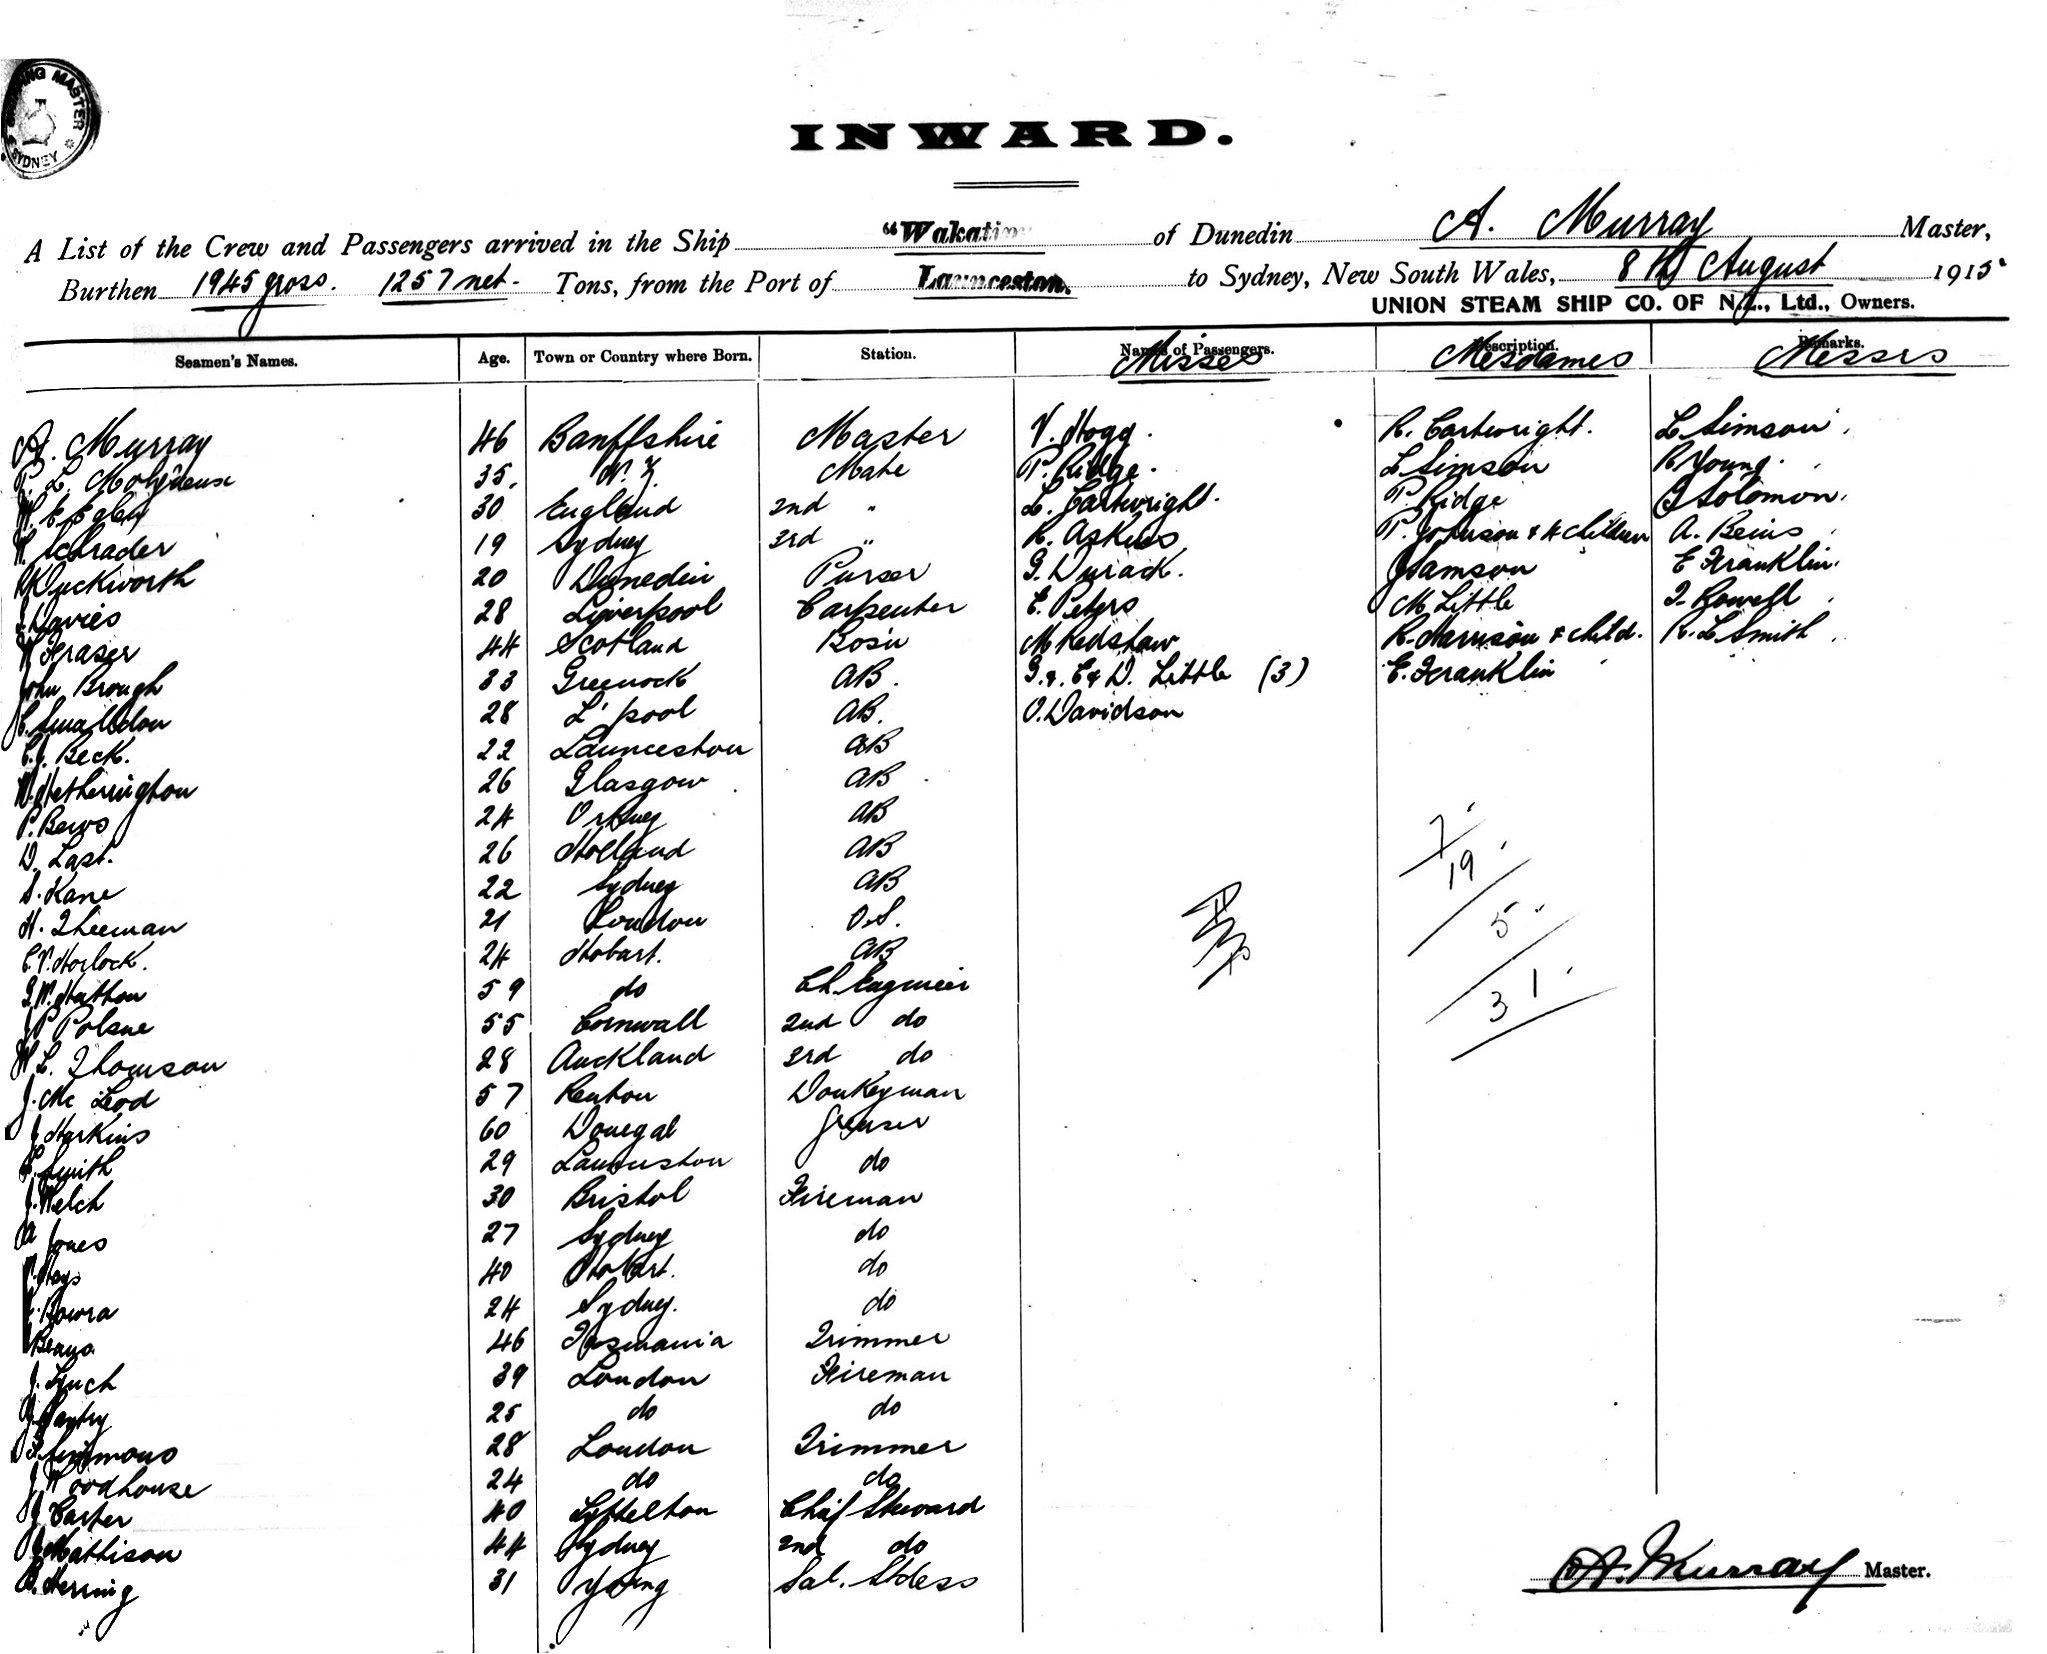 SHIPPING MASTER SYDNEY
INWARD.
A List of the Crew and Passengers arrived in the Ship "Wakatipu of Dunedin A. Murray Master,
Burthen 1945 gross. 1257 net. Tons, from the Port of Launceston. to Sydney, New South Wales, 8th August 1915
UNION STEAM SHIP CO. OF N.Z., Ltd., Owners.
Seamen's Names. Age. Town or Country where Born. Station. Names of Passengers. Description. Remarks.
Misses Mesdames Messrs
A. Murray 46 Banffshire Master V. Hogg. R. Cartwright. L Simson
P. L. 35. N.Z. Mate P. Ridge. L Simson R Young.
30 England 2nd " L. Cartwright. P. Ridge G Solomon.
Schrader 19 Sydney 3rd " R. Askins P. Johnson & 4 children A. Beins
Duckworth 20 Dunedin Purser G. Durack. J Samson E Franklin.
Davies 28 Liverpool Carpenter E. Peters M Little J. Rowell
Fraser 44 Scotland Bos'n M Redshaw R. Harrison & child. R. L Smith
John Brough 33 Greenock AB. G. & E & D. Little (3) E. Franklin
C. Smalldon 28 L'pool AB. O. Davidson
C.J. Beck. 22 Launceston AB
W. Hetherington 26 Glasgow AB
P. Bews 24 Orkney AB
D. Last. 26 Holland AB
S. Kane 22 Sydney AB
H. Theeman 21 London O.S.
C.V. Horlock. 24 Hobart. AB
G.W. Hatton 59 do Ch. Engineer
J P Polsue 55 Cornwall 2nd do
W L. Thomson 28 Auckland 3rd do
J. Mc Leod 57 Renton Donkeyman
J Harkins 60 Donegal Greaser
C. Smith 29 Launceston do
J. Welch 30 Bristol Fireman
A Jones 27 Sydney do
Hays 40 Hobart. do
Bowra 24 Sydney. do
46 Tasmania Trimmer
J. Lynch 39 London Fireman
25 do do
Simmons 28 London Trimmer
J Woodhouse 24 do do
J Carter 40 Lyttelton Chief Steward
J Mattison 44 Sydney 2nd do
B. Herring 31 Young Sal. Stdess
7
19
5
31
A. Murray Master.